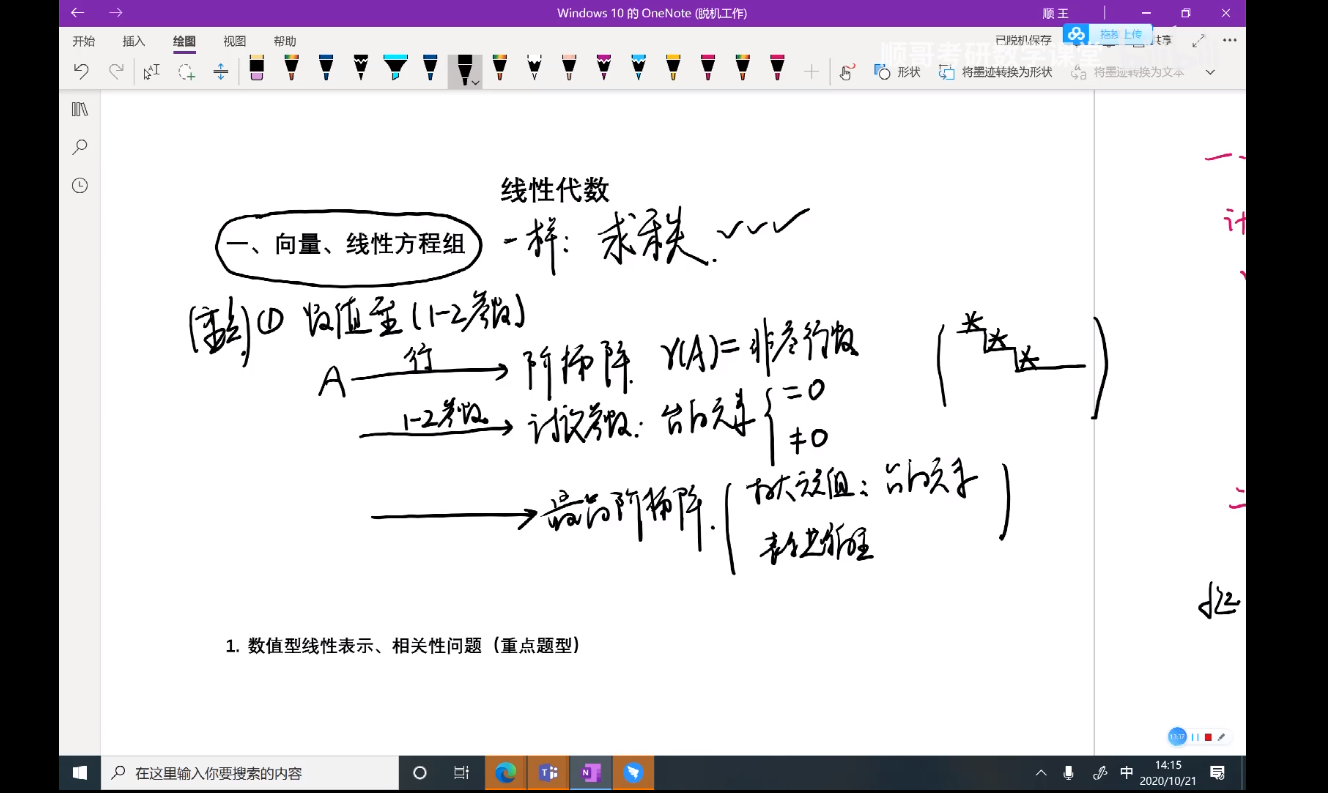 Windows 10 的 OneNote (脱机工作)
顺 王
开始 插入 绘图 视图 帮助
已脱机保存 拖拽上传 共享
形状 将墨迹转换为形状 将墨迹转换为文本
线性代数
一、向量、线性方程组 一样：求秩
(重点) ① 数值型 (1-2参数)
A 行 阶梯阵. r(A)=非零行数
1-2参数 讨论参数: 台角元素 =0
≠0
最简阶梯阵. 极大无关组: 台角元素
1. 数值型线性表示、相关性问题（重点题型）
在这里输入你要搜索的内容
中
14:15
2020/10/21